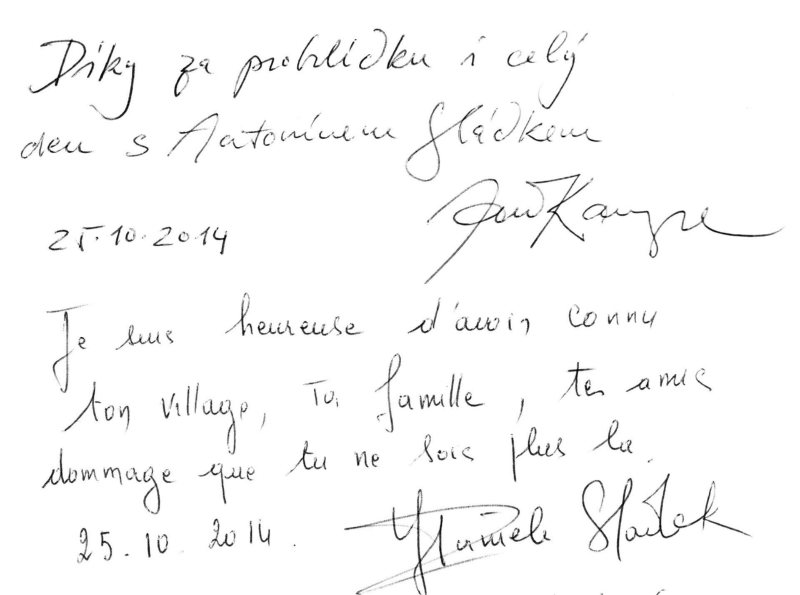 Díky za prohlídku i celý
den s Antonínem Sládkem
25.10.2014
Je suis heureuse d'avoir connu
ton village, Ta famille, tes amis
dommage que tu ne sois plus la.
25.10.2014.